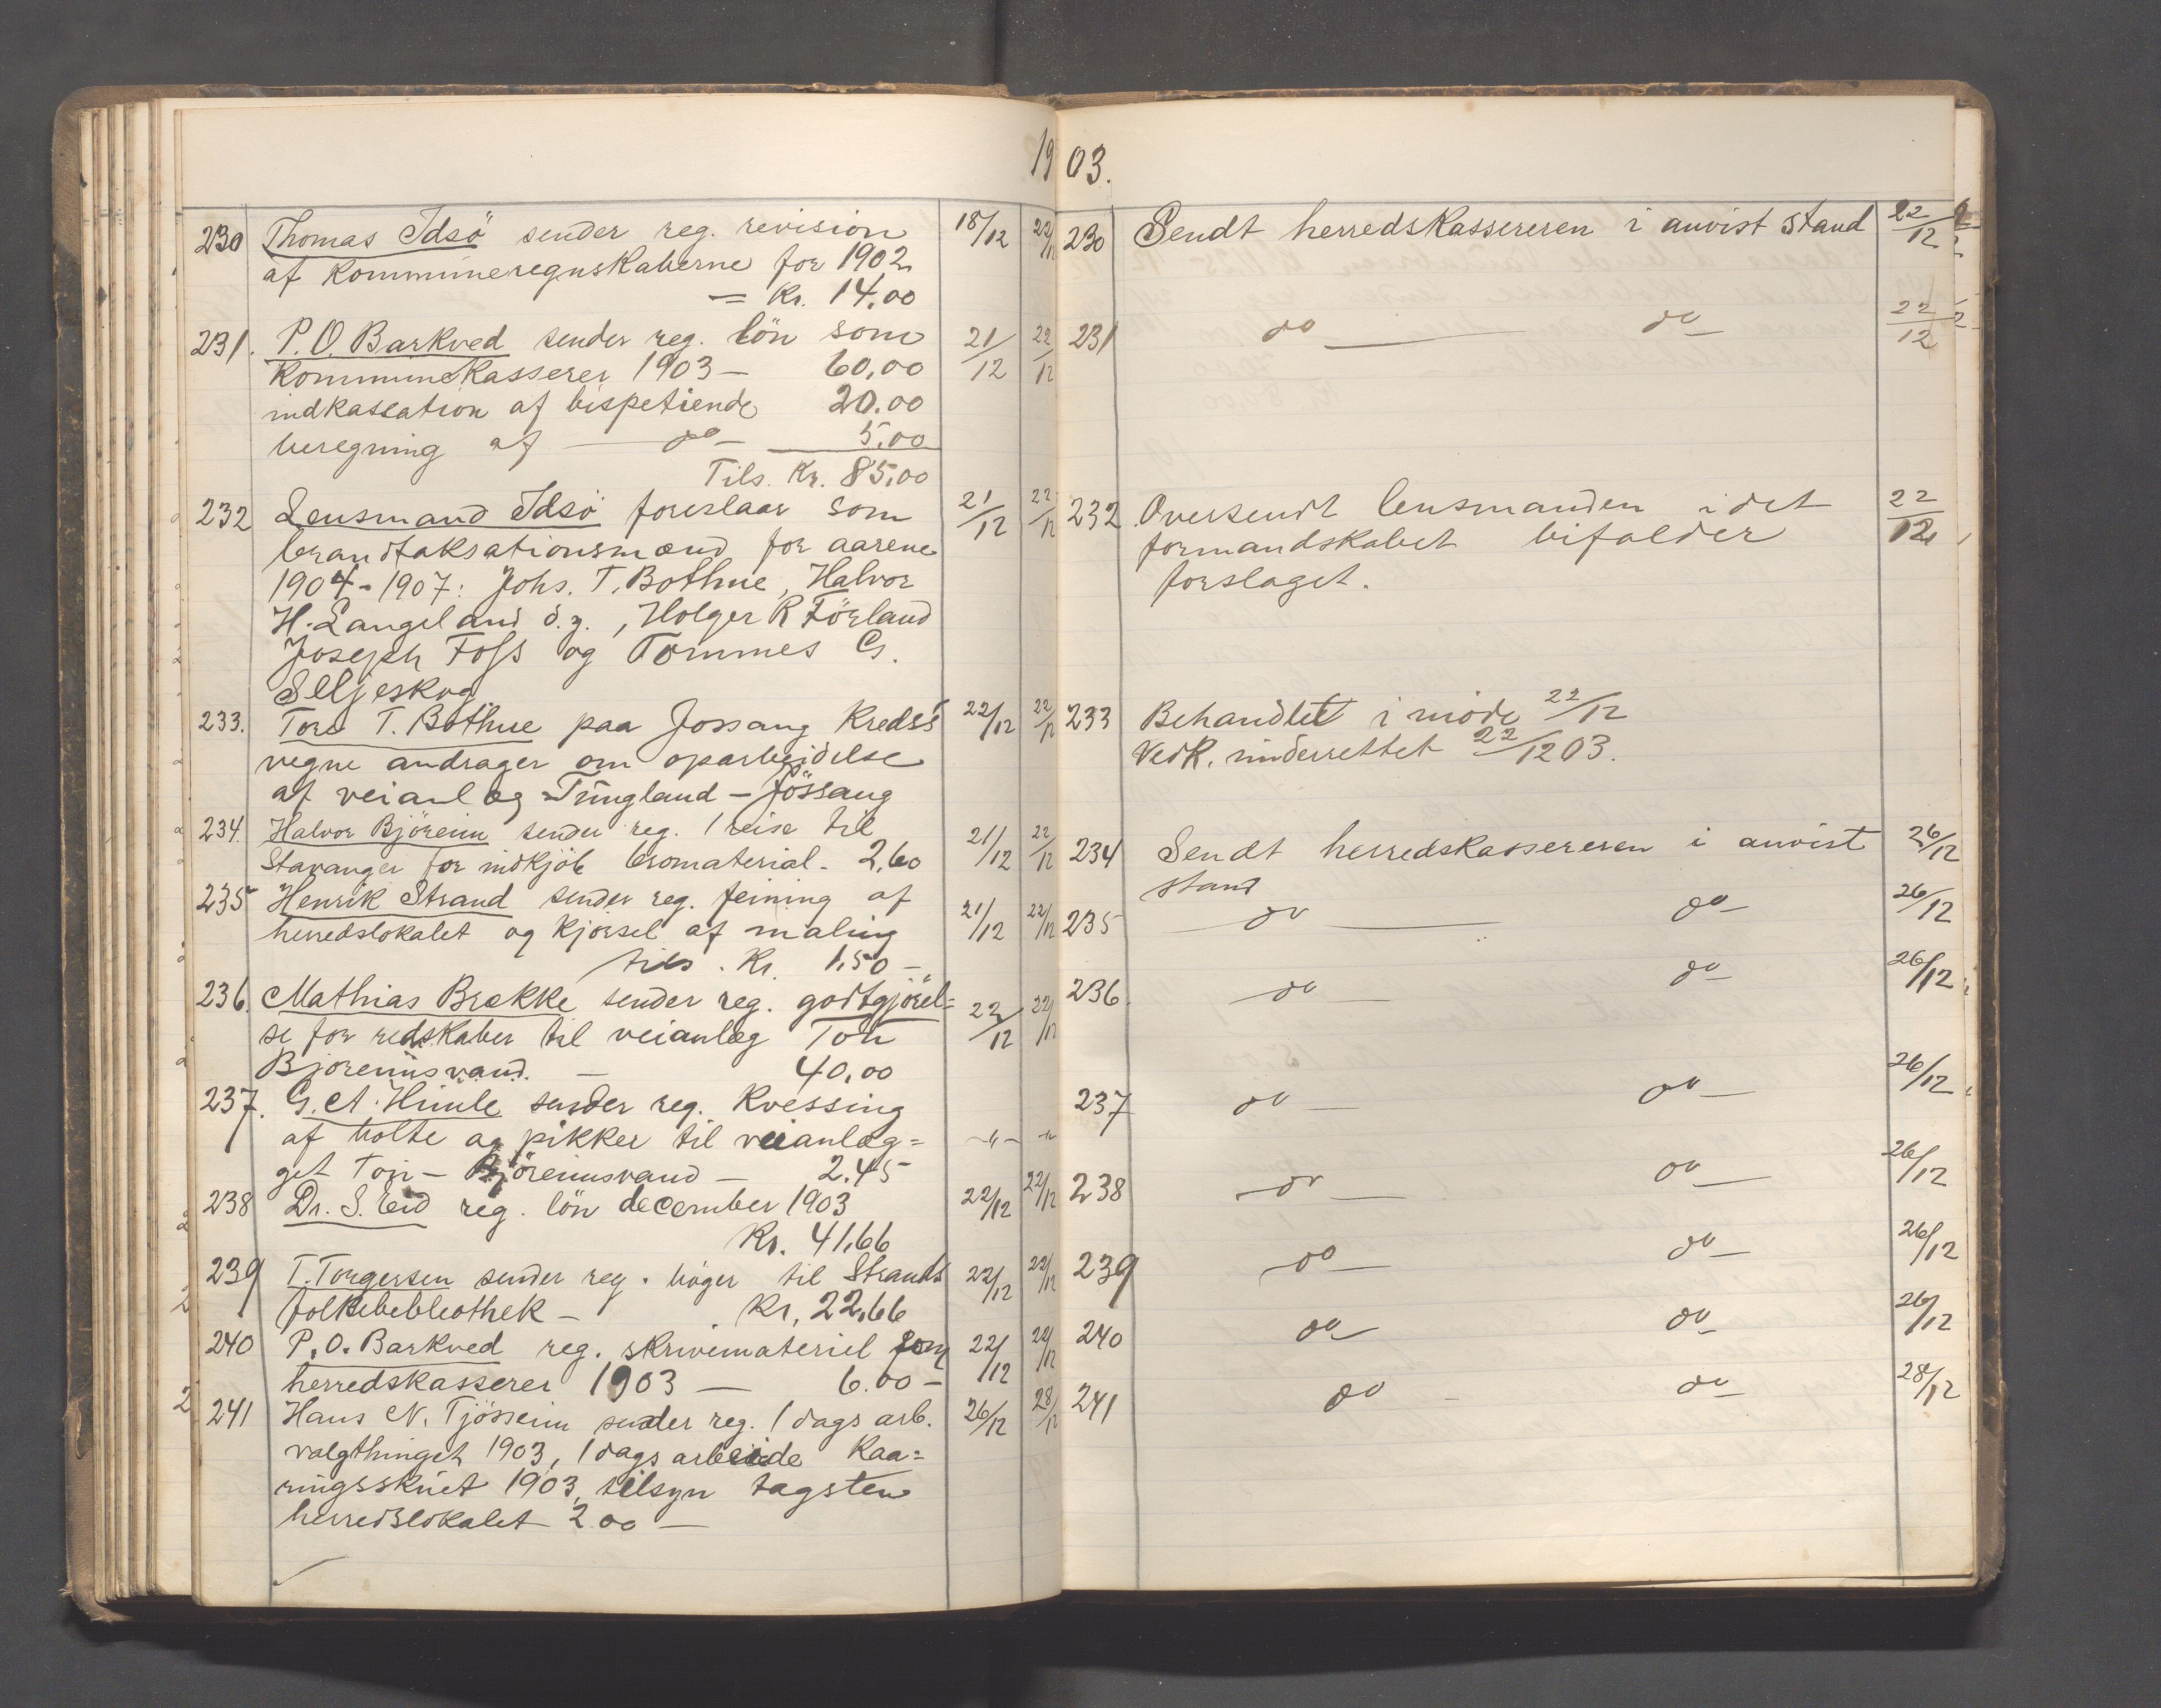 1903.
230 Thomas Idsö sender reg. revision 18/12 22/12
af kommuneregnskaberne for 1902
= Kr. 14,00
231. P. O. Barkved sender reg. lön som 21/12 22/12
kommunekasserer 1903 — 60,00
indkassation af bispetiende 20.00
beregning af — do — 5,00
Tils. Kr. 85,00
232 Lensmand Idsö foreslaar som 21/12 22/12
brandtaksationsmænd for aarene
1904-1907: Johs. T. Bothne, Halvor
H. Langeland d.y., Holger R Förland
Joseph Foss og Tommes G.
Seljeskog
233. Tore T. Bothne paa Jossang Kreds's 22/12 22/12
vegne andrager om oparbeidelse
af veianlæg Tungland – Jössang
234. Halvor Björeim sender reg. 1 reise til 21/12 22/12
Stavanger for indkjöb bromaterial - 2,60
235 Henrik Strand sender reg. feining af 21/12 22/12
herredslokalet og kjörsel af maling
tils. Kr. 1,50 –
236. Mathias Brekke sender reg. godtgjörel= 22/12 22/12
se for redskaber til veianlæg Tou
Björeimsvand. — 40,00
237. G. A. Himle sender reg. kvessing
af bolte og pikker til veianlæg= -"- -"-
get Tou – Björeimsvand – 2.45
238 Dr. S. Eid reg. lön december 1903 22/12 22/12
Kr. 41,66
239 T. Torgersen sender reg. böger til Strands 22/12 22/12
folkebebliothek – Kr. 22,66
240 P. O. Barkved reg. skrivemateriel som 22/12 22/12
herredskasserer 1903 — 6.00 –
241 Hans N. Tjösseim sender reg. 1 dags arb. 26/12 28/12
valgthinget 1903, 1 dags arbeide Kaa=
ringsskuet 1903, tilsyn tagsten
herredslokalet 2 00 —
230 Sendt herredskassereren i anvist stand 22/12
231 do — do — 22/12
232. Oversendt lensmanden idet 22/12
formandskabet bifalder
forslaget.
233 Behandlet i möde 22/12
Vedk. underrettet 22/12 03.
234 Sendt herredskassereren i anvist 26/12
stand
235 — do — do — 26/12
236. — do — do — 26/12
237 do — do — 26/12
238 — do — do — 26/12
239 — do — do — 26/12
240 do do — 26/12
241 do - do — 28/12